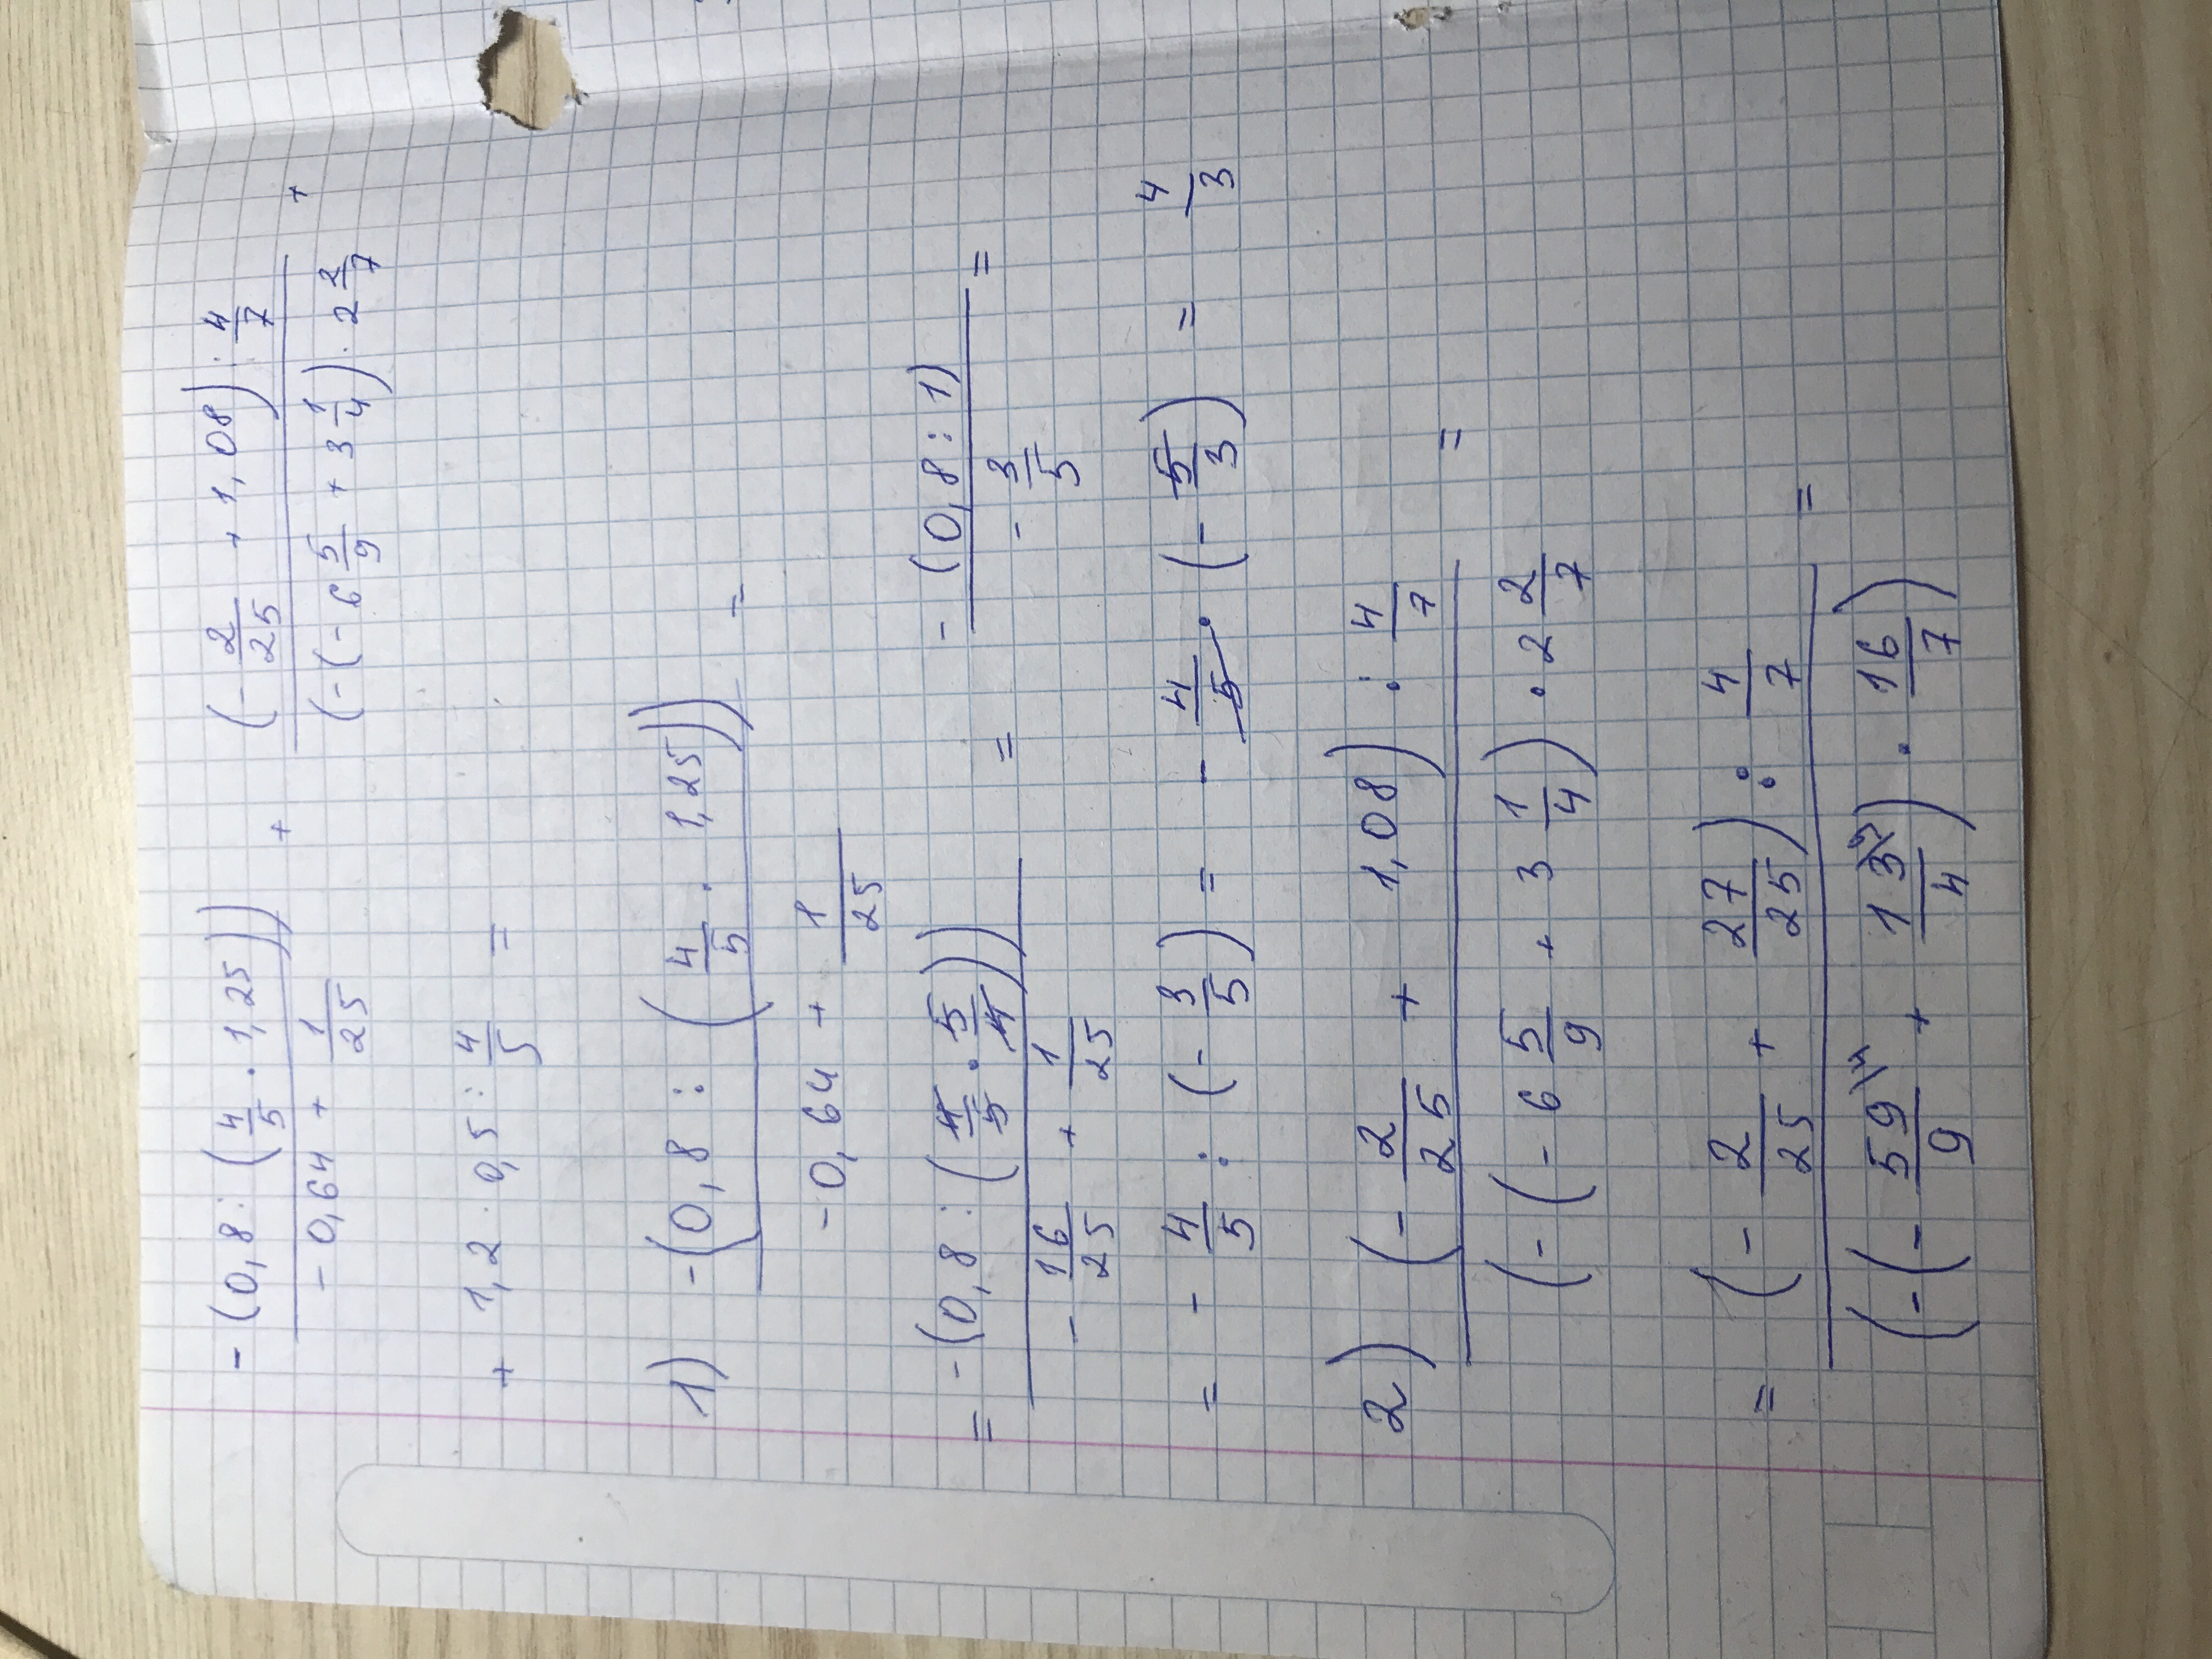 -(0,8 : (4/5 · 1,25)) / (-0,64 + 1/25) + (-2/25 + 1,08) : 4/7 / (-(-6 5/9 + 3 1/4) · 2 2/7 +
+ 1,2 · 0,5 : 4/5 =
1) -(0,8 : (4/5 · 1,25)) / (-0,64 + 1/25) =
= -(0,8 : (4/5 · 5/4)) / (-16/25 + 1/25) = -(0,8 : 1) / (-3/5) =
= -4/5 : (-3/5) = -4/5 · (-5/3) = 4/3
2) (-2/25 + 1,08) : 4/7 / (-(-6 5/9 + 3 1/4) · 2 2/7 =
= (-2/25 + 27/25) : 4/7 / (-(-59/9 + 13/4) · 16/7) =